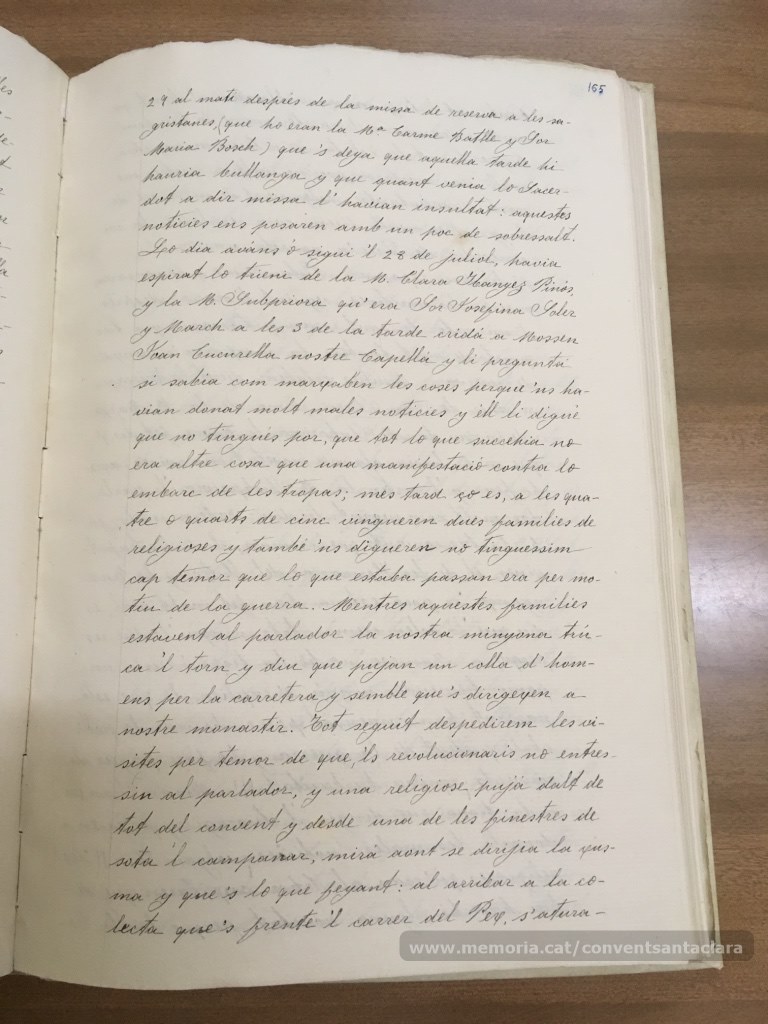 165
29 al mati després de la missa de reserva a les sa-
gristanes, (que ho eran la Mª Carme Batlle y Sor
Maria Bosch) que 's deya que aquella tarde hi
hauria bullanga y que quant venia lo Sacer-
dot a dir missa l' havian insultat: aquestes
noticies ens posaren amb un poc de sobressalt.
Lo dia avans ó sigui 'l 28 de juliol, havia
espirat lo trieni de la M. Clara Ibanyez Pinós,
y la M. Subpriora qu' era Sor Josefina Soler
y March a les 3 de la tarde cridá a Mossen
Joan Cucurella nostre Capellá y li preguntá
si sabia com marxaben les coses perque 'ns ha-
vian donat molt males noticies y ell li digué
que no tingués por, que tot lo que succehia no
era altre cosa que una manifestació contra lo
embarc de les tropas; mes tard ço es, a les qua-
tre o quarts de cinc vingueren dues families de
religioses y també 'ns digueren no tinguessim
cap temor que lo que estaba passan era per mo-
tiu de la guerra. Mentres aquestes families
estavent al parlador la nostra minyona trú-
ca 'l torn y diu que pujan un colla d' hom-
ens per la carretera y semble que 's dirigeyen a
nostre monastir. Tot seguit despedirem les vi-
sites per temor de que 'ls revolucionaris no entres-
sin al parlador, y una religiose pujá 'dalt de
tot del convent y desde una de les finestres de
sota 'l campanar, mirá aont se dirijia la qus-
ma y que 's lo que feyant: al arribar a la co-
lecta que 's frente 'l carrer del Pex, s' atura-
www.memoria.cat/conventsantaclara